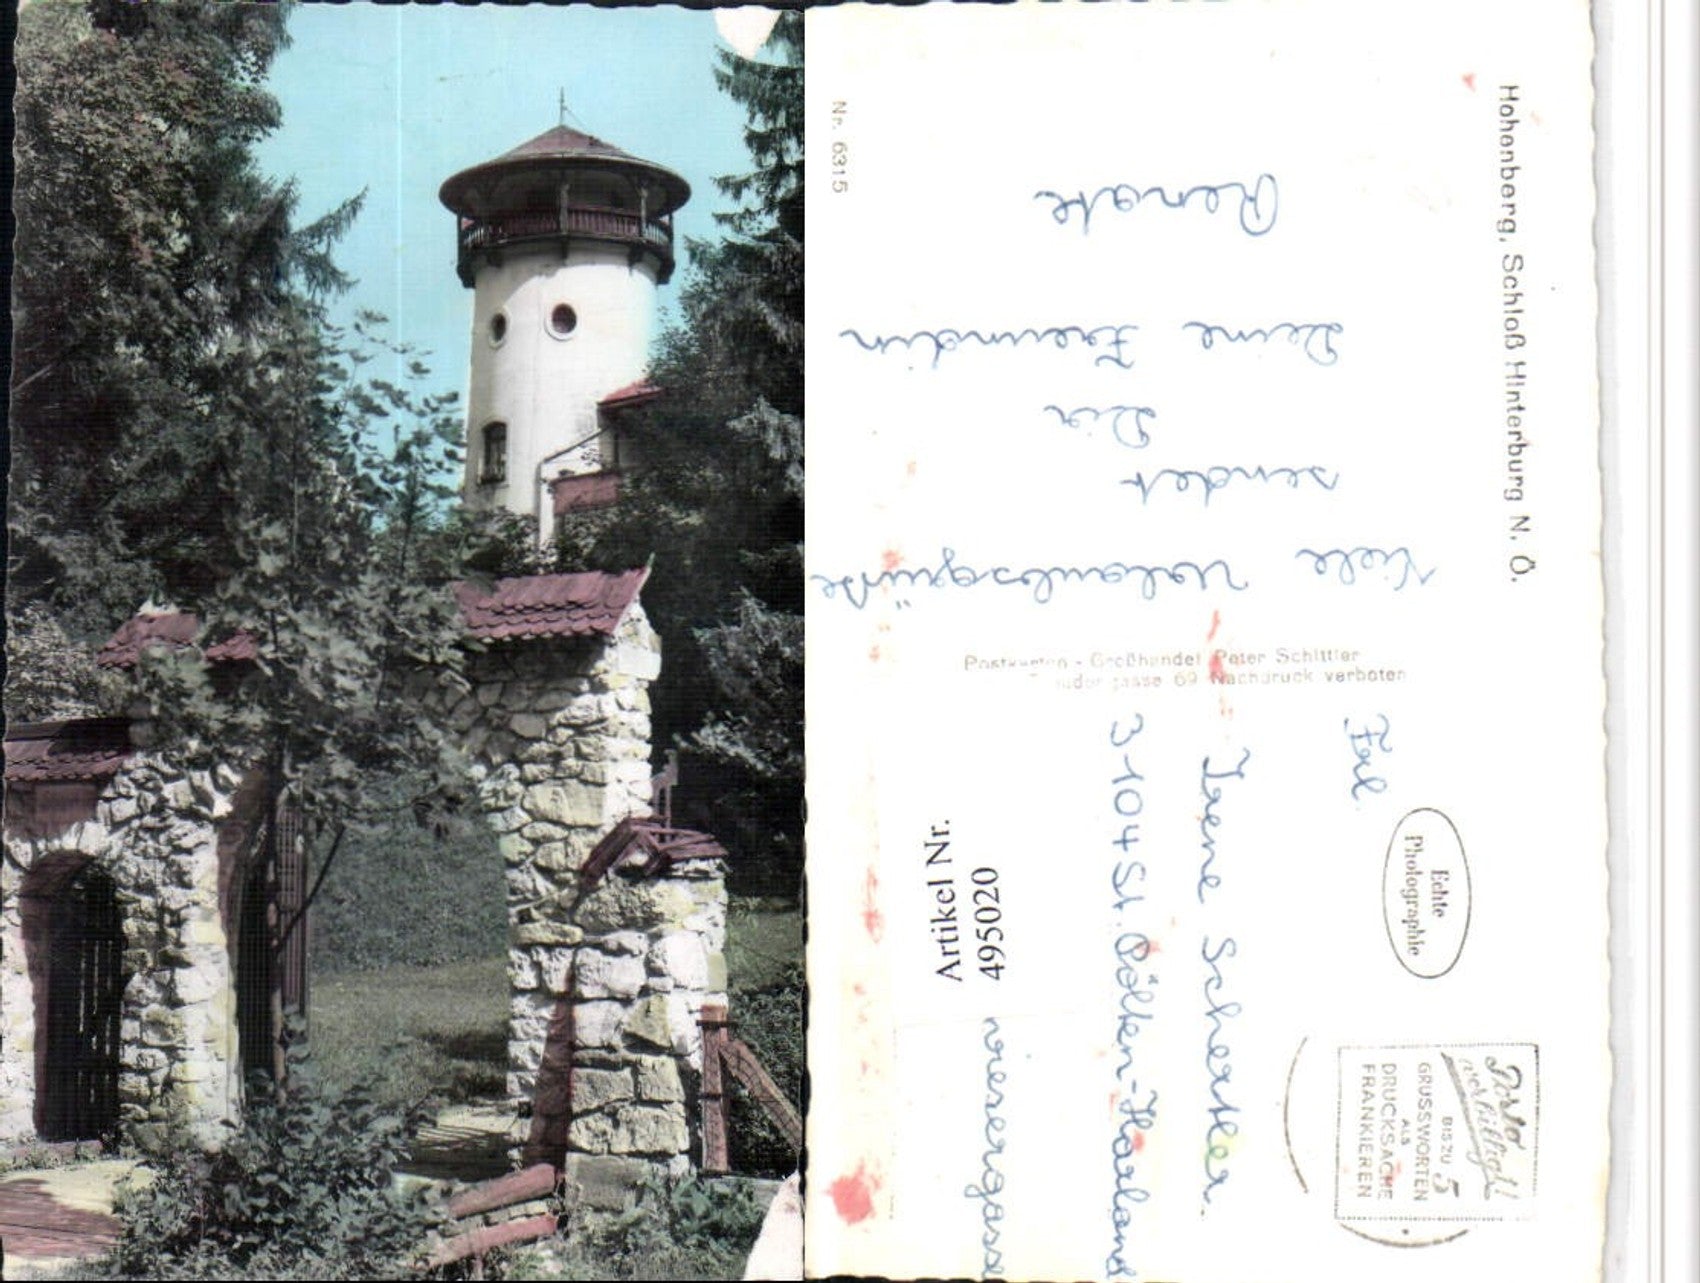 Hohenberg, Schloß Hinterburg N. Ö.
Nr. 6315
Viele Urlaubsgrüße
sendet
Dir
Deine Freundin
Renate
Postkarten - Großhandel Peter Schittler
69 Nachdruck verboten
Echte
Photographie
Porto
verbilligt!
BIS ZU 5
GRUSSWORTEN
ALS
DRUCKSACHE
FRANKIEREN
Frl.
Irene Schertler.
3104 St. Pölten-Harland
wiesergasse
Artikel Nr.
4950020